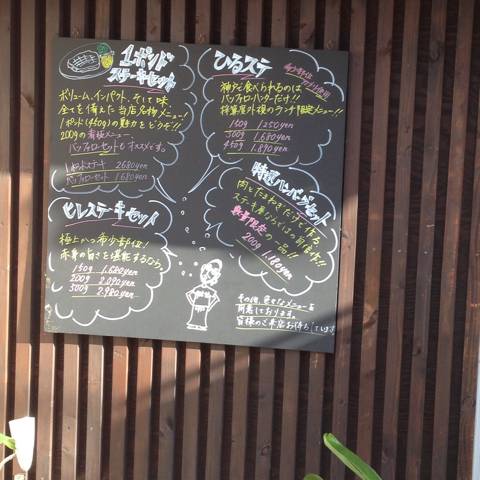 1ポンド
ステーキセット
ボリューム、インパクト、そして味
全てを備えた当店名物メニュー!!
1ポンド(450g)の魅力をビクザ!!
200gの看板メニュー
バッファローセットもオススメです。
1ポンドステーキ 2680yen
バッファローセット 1680yen
ひるステ
神戸で食べられるのは
バッファローハンターだけ!!
のランチ限定メニュー!!
150g 1250yen
300g 1.680yen
450g 1.890yen
特選ハンバーグセット
肉とたまねぎだけで作る
ステーキ屋ならではの自信作!!
数量限定の一品!!
200g 1.180yen
ヒレステーキセット
極上かつ希少部位!
赤身の旨さを堪能するなら。
150g 1.680yen
200g 2.090yen
300g 2.980yen
その他、色々なメニューを
用意しております。
皆様のご来店お待ちしています